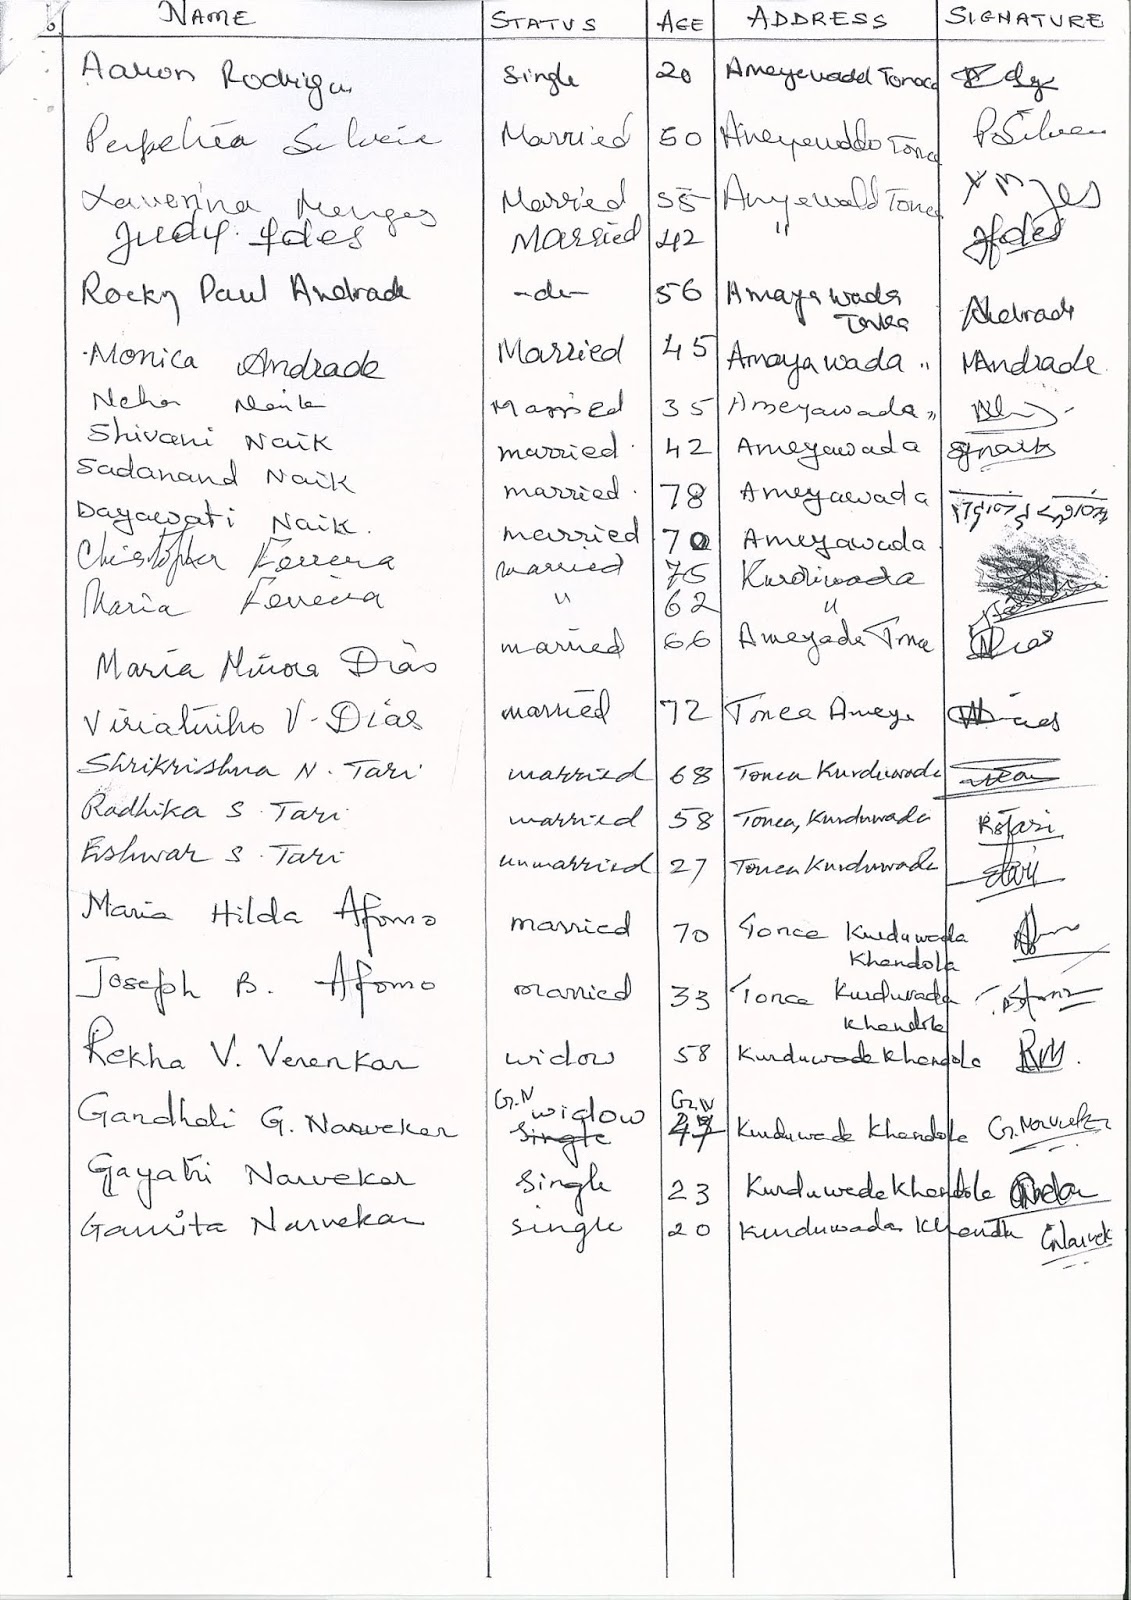 NAME STATUS AGE ADDRESS SIGNATURE
Aaron Rodrigu single 20 Ameyewadd Tonca
Perpetia Silveia Married 50 Ameyewddo Tonca P. Silvea
Xaverina Menges Married 55 Amyewadd Tonca
Judy. Fdes Married 42 " Jfdes
Rocky Paul Andrade -do- 56 Amaya wada Tonca Andrade
Monica Andrade Married 45 Amaya wada " MAndrade
Neha Naik Married 35 Ameyawada "
Shivani Naik married 42 Ameyawada Snaik
Sadanand Naik married 78 Ameyawada
Dayawati Naik. married 70 Ameyawada
Christopher Ferrera married 75 Kurdiwada
Maria Ferreira " 62 "
Maria Minora Dias married 66 Ameyade Tonca Dias
Viriatinho V. Dias married 72 Tonca Ameye Dias
Shrikrishna N. Tari married 68 Tonca Kurduwada
Radhika S. Tari married 58 Tonca, Kurduwada RSTari
Eshwar S. Tari unmarried 27 Tonca Kurduwada Tari
Maria Hilda Afonso married 70 Tonca Kurduwada Khandola
Joseph B. Afonso married 33 Tonca Kurduwada Khandola
Rekha V. Verenkar widow 58 Kurduwada Khandola
Gandhali G. Narvekar G.N widow single G.N 47 Kurduwade Khandola G. Narvekar
Gayatri Narvekar Single 23 Kurduwade Khandola
Gaurita Narvekar single 20 Kurduwada Khandla GNarvek